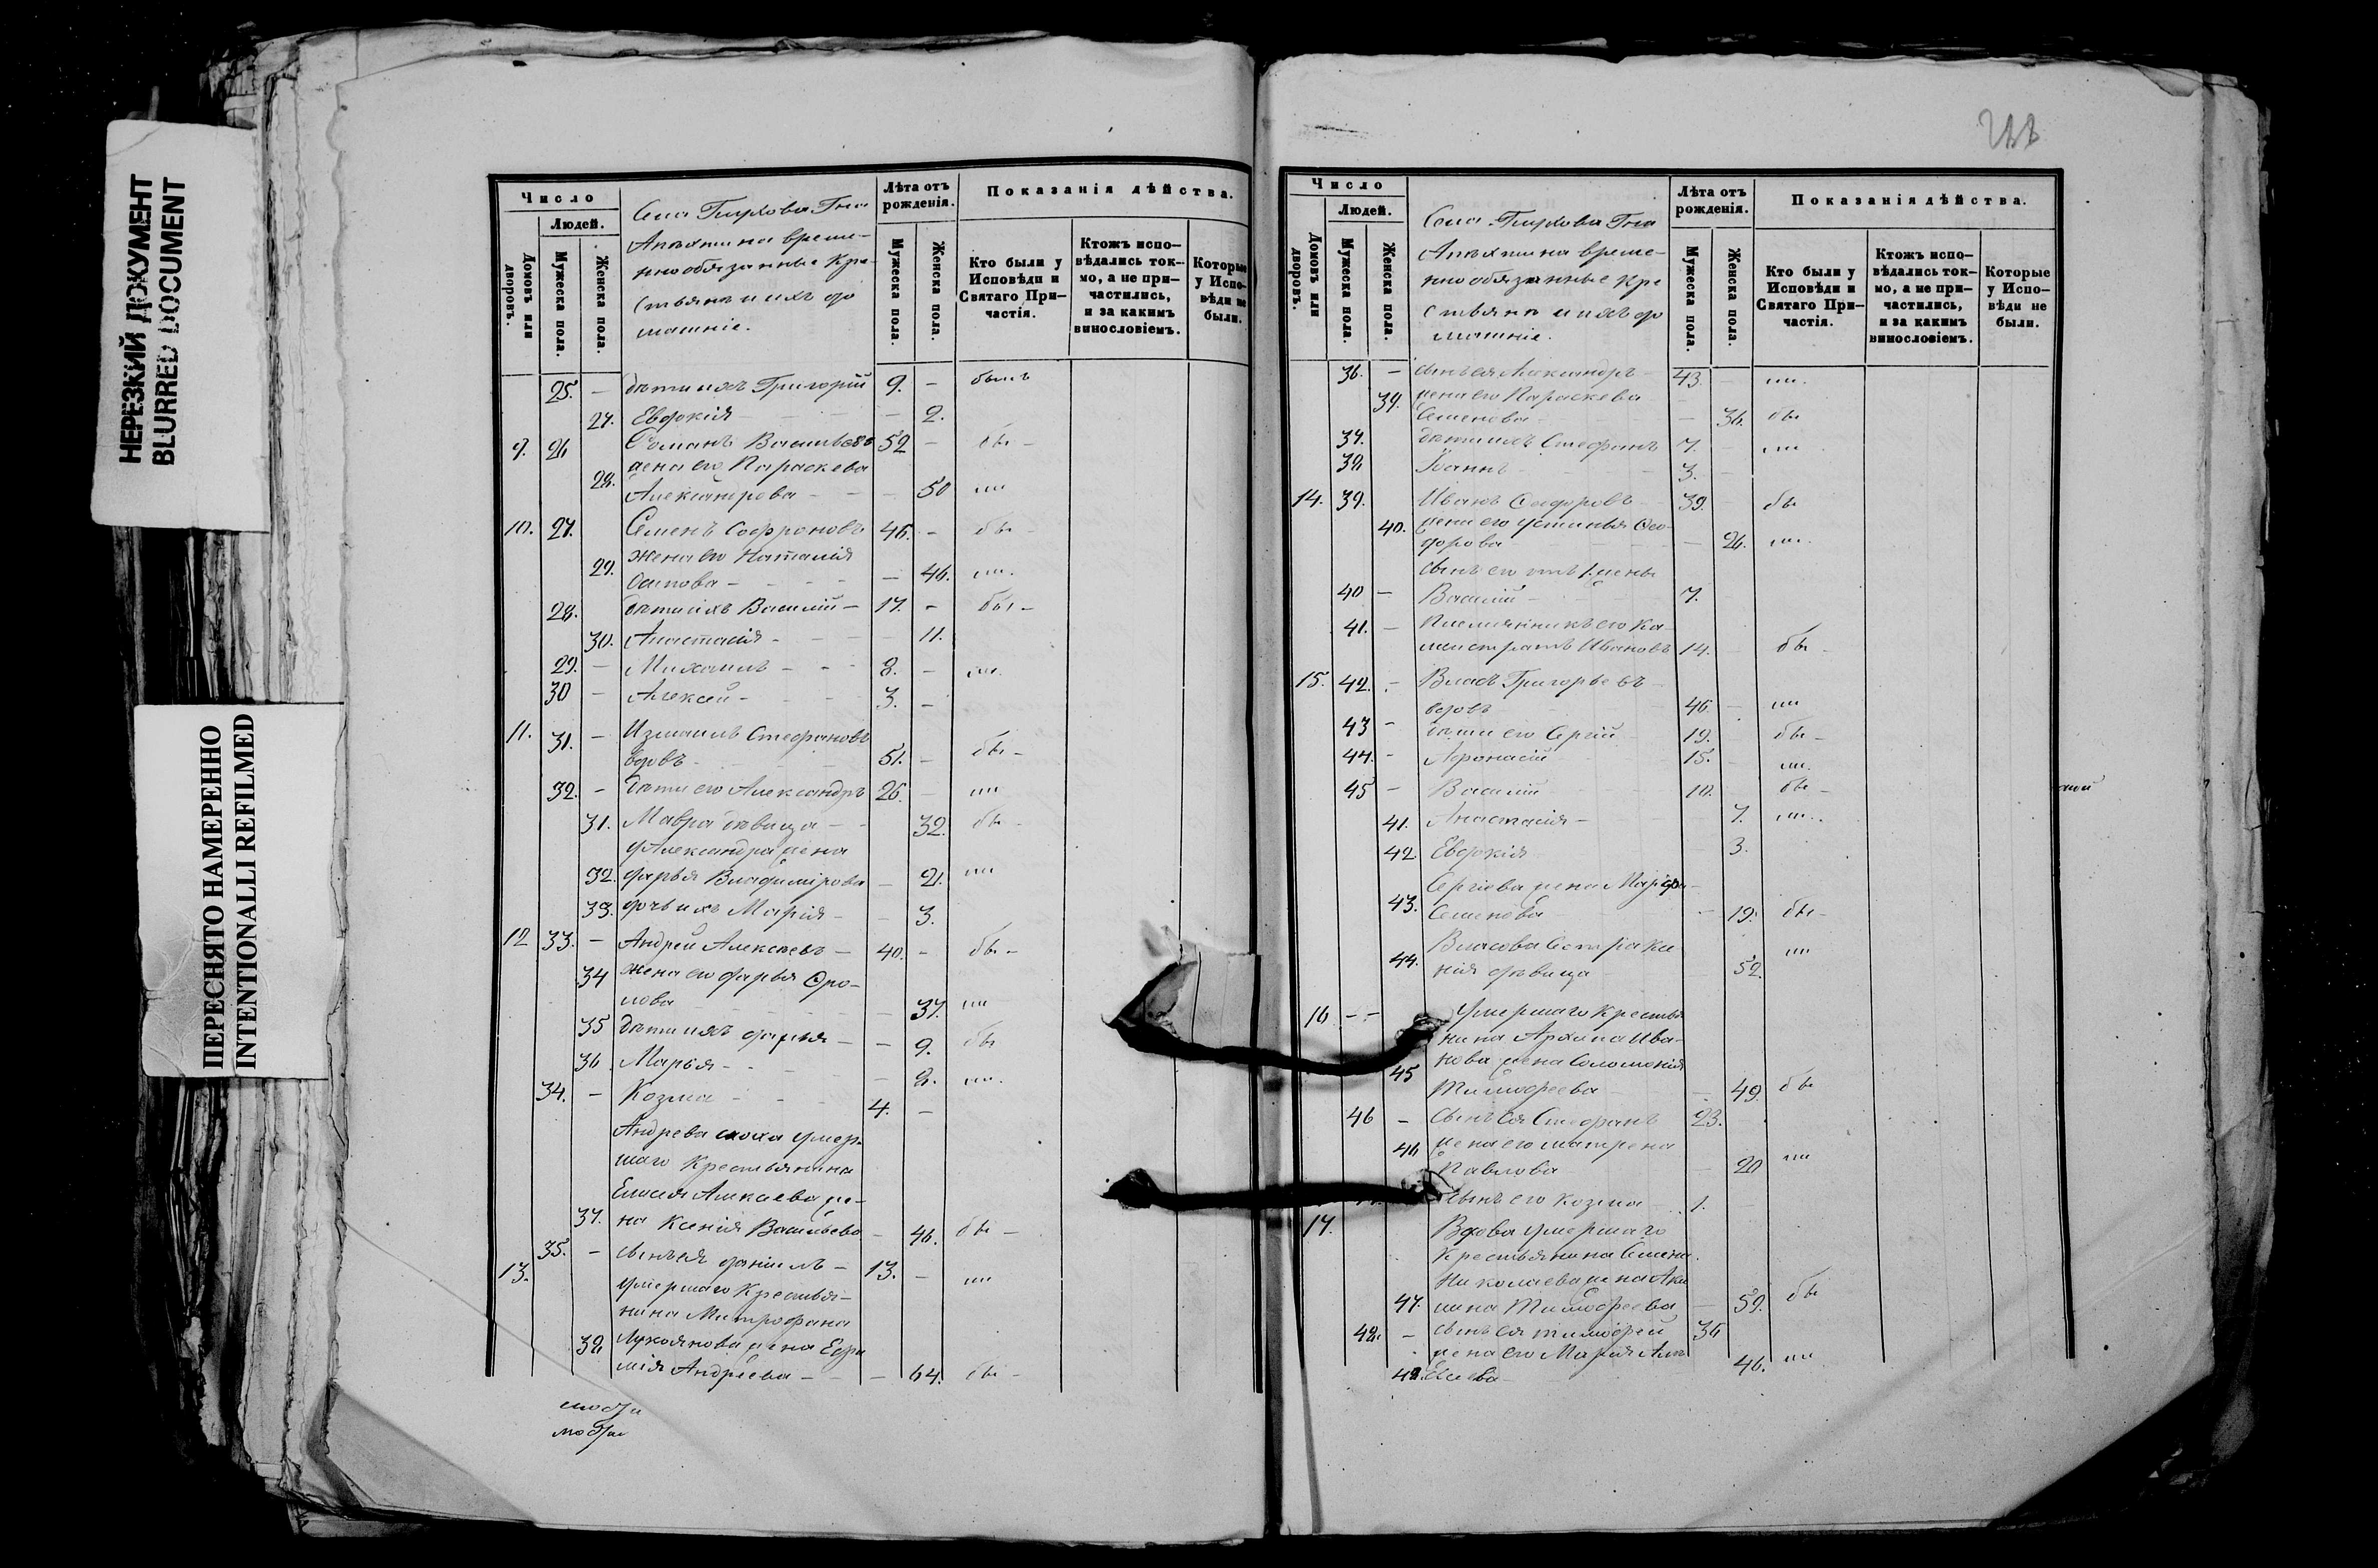 НЕРЕЗКИЙ ДОКУМЕНТ
BLURRED DOCUMENT
ПЕРЕСНЯТО НАМЕРЕННО
INTENTIONALLI REFILMED
Число
Людей.
Домовъ или дворовъ.
Мужеска пола.
Женска пола.
Села Гна
Апыхтина време-
ннообязанные Кре-
стьяне и ихъ до
машніе.
Лѣта отъ рожденія.
Мужеска пола.
Женска пола.
Показанія дѣйства.
Кто были у Исповѣди и Святаго При-частія.
Ктожъ испо-вѣдались ток-мо, а не при-частились, и за какимъ винословіемъ.
Которые у Испо-вѣди не были.
25. - дѣти ихъ Григорій 9. - былъ
27. Евдокія - 2.
9. 26 Романъ Васильевъ 52 - бы -
жена его Параскева
28. Александрова - 50 "
10. 27. Семенъ Софроновъ 46. - бы -
жена его Наталія
29. Осипова - 46. "
28. дѣти ихъ Василій - 17. - бы -
30. Анастасія - 11.
29. - Михаилъ - 8. - "
30 - Алексей - 3. -
11. 31. - Измаилъ Стефановъ
вдовъ - 51. - бы -
32. - дѣти его Александръ 26. - "
31. Мавра дѣвица - 32. бы -
у Александра жена
32. Дарья Владимірова - 21. "
33. дочь ихъ Марія - 3.
12 33. - Андрей Алексѣевъ - 40. - бы -
34 жена его Дарья Фро-
лова - 37. "
35 дѣти ихъ Дарья - 9. бы
36 Марья - 8. "
34. - Козма - 4. -
Андрева сноха умер-
шаго Крестьянина
жe-
37. на Ксенія Васильева - 46. бы -
35. - сынъ ея Даніилъ - 13. - "
13. умершаго Крестья-
нина Митрофана
38 Лукоянова жена Ефи
мія Андреева - 64. бы -
Число
Людей.
Домовъ или дворовъ.
Мужеска пола.
Женска пола.
Села Гна
Апыхтина време-
ннообязанные Кре
стьяне и ихъ до
машніе.
Лѣта отъ рожденія.
Мужеска пола.
Женска пола.
Показанія дѣйства.
Кто были у Исповѣди и Святаго При-частія.
Ктожъ испо-вѣдались ток-мо, а не при-частились, и за какимъ винословіемъ.
Которые у Испо-вѣди не были.
36. - сынъ ея Александръ 43. - "
39. жена его Параскева
Семенова - 36. бы
37. дѣти ихъ Стефанъ 7. - "
38 Іоаннъ 3. -
14. 39. Иванъ Сидоровъ 39. бы
40. жена его Устинья Фео-
дорова - 26. "
сынъ его отъ 1. жены
40 - Василій - 7.
41. - Племянникъ его Ка
листратъ Ивановъ 14. бы -
15. 42. - Власъ Григорьевъ
вдовъ 46. - "
43 - дѣти его Сергій 19. бы -
44. - Афонасій 15. "
45 - Василій 10. бы -
41. Анастасія - 7. "
42 Евдокія 3.
Сергіева жена Марія
43. Семенова - 19. бы -
Власова сестра Ксе
44. нія дѣвица 52. "
16 - - Умершаго Крестья
нина Архипа Ива-
нова жена Соломонія
45 Тимофеева 49. бы
46 - сынъ ея Стефанъ 23.
46 жена его Матрена
Павлова 20 "
сынъ его Козма 1.
17. Вдова умершаго
Крестьянина Семена
Николаева жена Аку
47. лина Тимофеева - 59. бы
48. - сынъ ея Тимофей 36
жена его Марія Але
48. ксеева 46. "